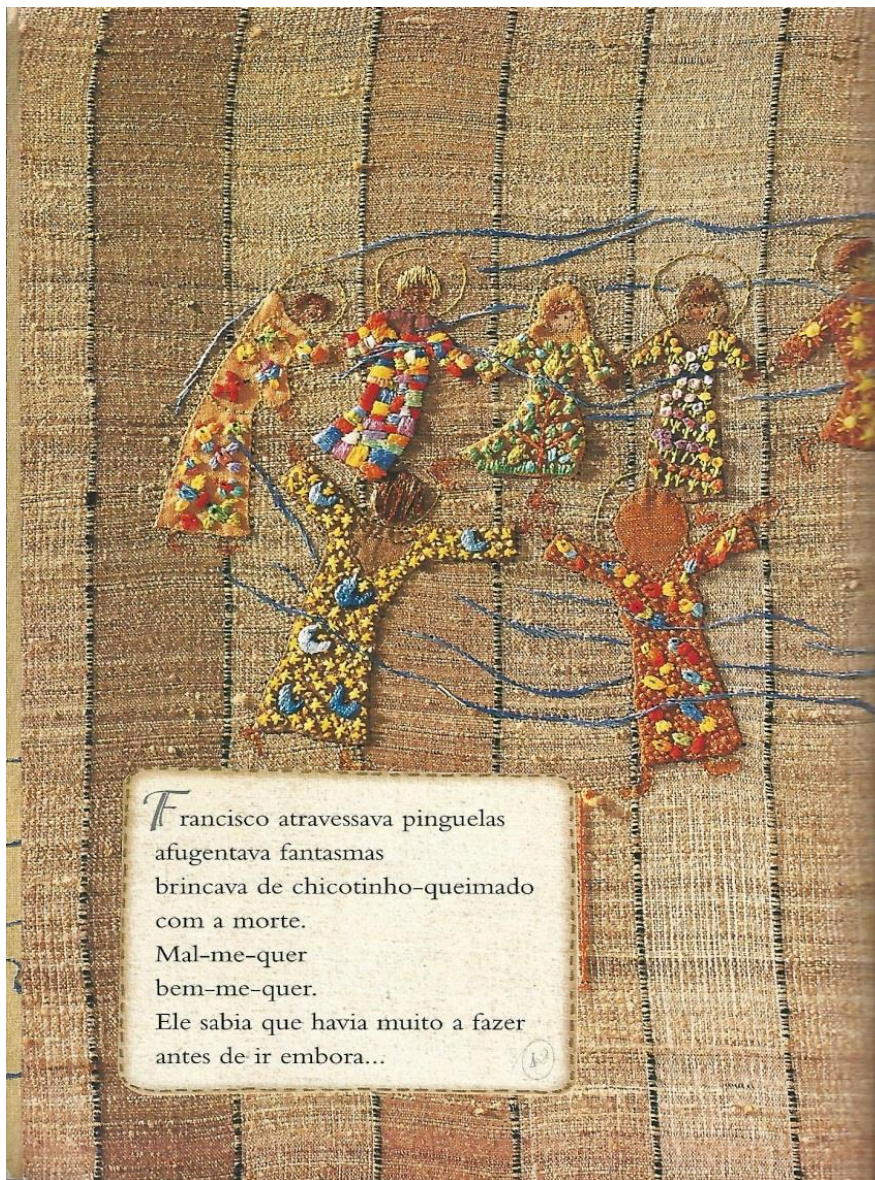 Francisco atravessava pinguelas
afugentava fantasmas
brincava de chicotinho-queimado
com a morte.
Mal-me-quer
bem-me-quer.
Ele sabia que havia muito a fazer
antes de ir embora...